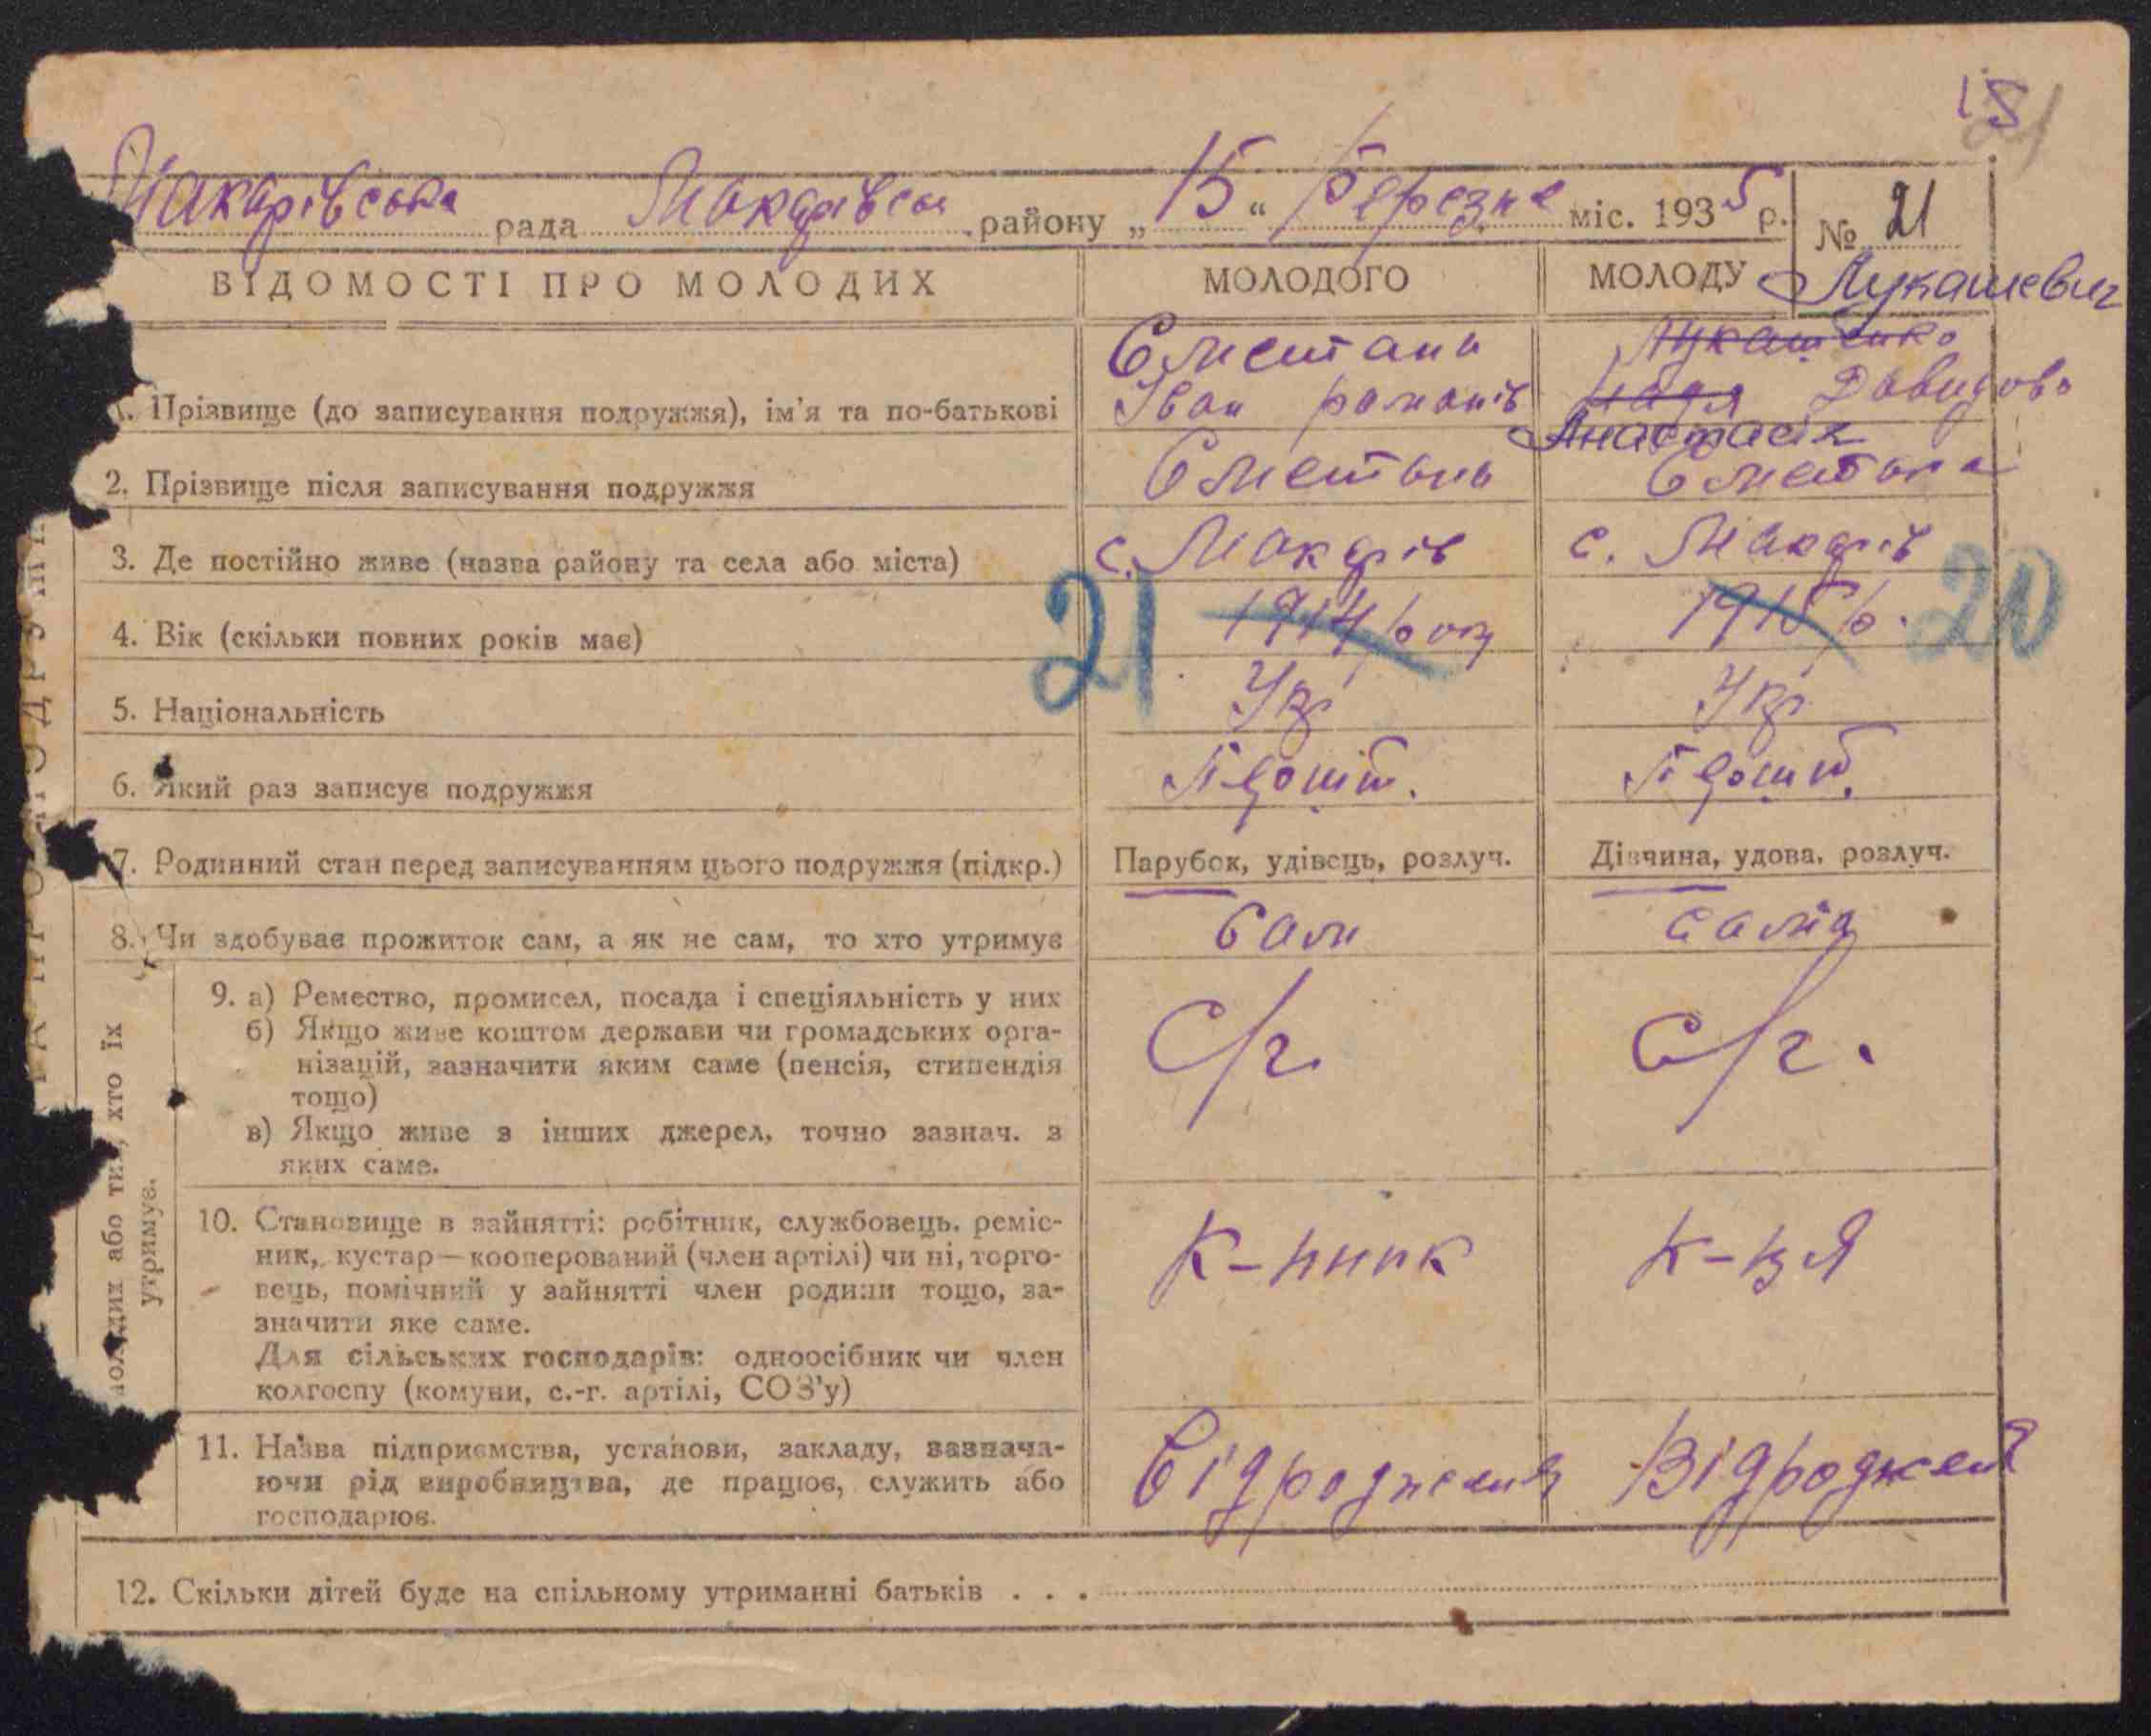 15
21
Макарівська рада Макарівськ району „15“ Березня міс. 1935 р. № 21
ВІДОМОСТІ ПРО МОЛОДИХ МОЛОДОГО МОЛОДУ Лукашевич
Сметана Лукашенко
1. Прізвище (до записування подружжя), ім'я та по-батькові Іван романів Надя Давидова
Анастасія
2. Прізвище після записування подружжя Сметана Сметана
3. Де постійно живе (назва району та села або міста) с. Макарів с. Макарів
4. Вік (скільки повних років має) 21 1914 року 1915 р. 20
5. Національність Укр Укр
6. Який раз записує подружжя Перший. Перший.
7. Родинний стан перед записуванням цього подружжя (підкр.) Парубок, удівець, розлуч. Дівчина, удова, розлуч.
8. Чи здобуває прожиток сам, а як не сам, то хто утримує Сам сама
молодих або тих, хто їх
утримує.
9. а) Ремество, промисел, посада і спеціяльність у них С/г С/г.
б) Якщо живе коштом держави чи громадських орга-
нізацій, зазначити яким саме (пенсія, стипендія
тощо)
в) Якщо живе з інших джерел, точно зазнач. з
яких саме.
10. Становище в зайнятті: робітник, службовець, реміс-
ник, кустар—кооперований (член артілі) чи ні, торго- К-ник К-ця
вець, помічний у зайнятті член родини тощо, за-
значити яке саме.
Для сільських господарів: одноосібник чи член
колгоспу (комуни, с.-г. артілі, СОЗ'у)
11. Назва підприємства, установи, закладу, зазнача-
ючи рід виробництва, де працює, служить або Відродження Відродження
господарює.
12. Скільки дітей буде на спільному утриманні батьків . . .